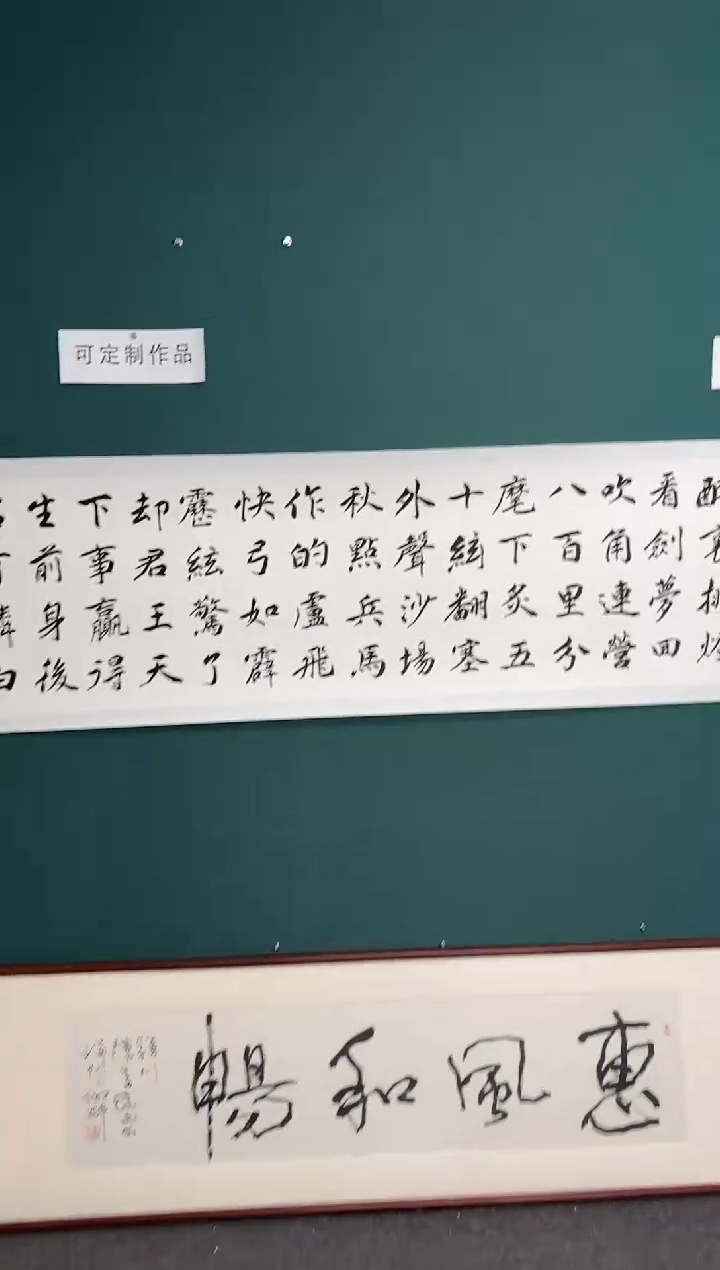 可定制作品
看劍夢回
吹角連營
八百里分
麾下炙五
十絃翻塞
外聲沙場
秋點兵馬
作的盧飛
快弓如霹
靂絃驚了
却君王天
下事贏得
生前身後
惠風和暢